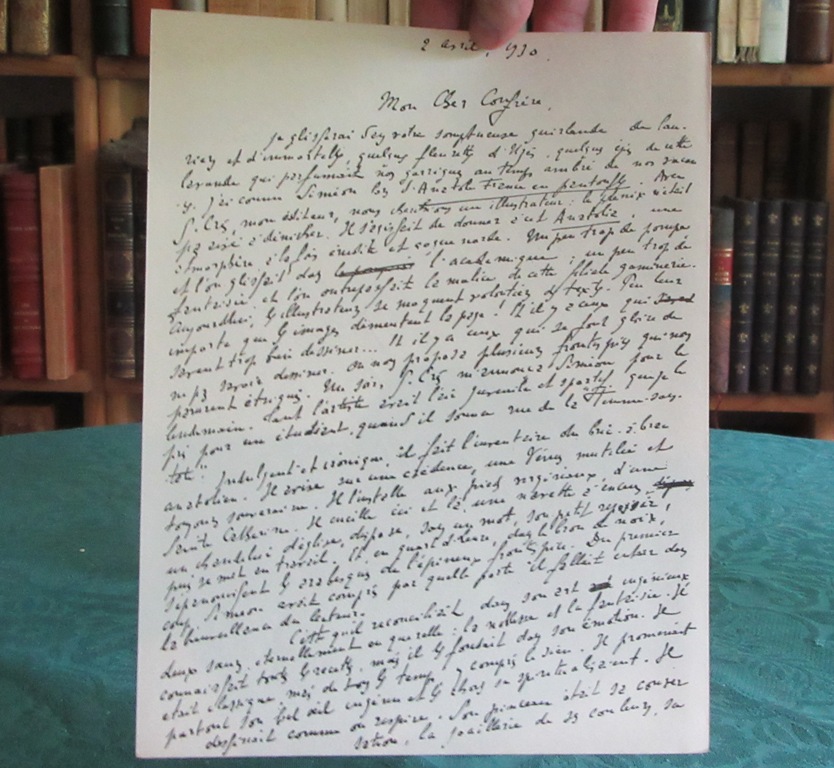 2 avril, 1930.
Mon Cher Confrère,
Je glisserai sous votre somptueuse guirlande de lau-
riers et d'immortelles, quelques fleurettes d'Uzès, quelques épis de cette
lavande qui parfumait nos garrigues au temps de nos
J'ai connu Siméon lors d'Anatole France en pantoufles. Avec
G. Crès, mon éditeur, nous cherchions un illustrateur : le phénix n'était
pas aisé à dénicher. Il s'agissait de donner à cet Anatole, une
atmosphère à la fois érudite et goguenarde. Un peu trop de pompe
et l'on glissait dans l'académique ; un peu trop de
fantaisie et l'on outrepassait la malice de cette gaminerie.
Aujourd'hui, les illustrateurs se moquent volontiers des textes. Peu leur
importe que les images démentent la page ! Il y a ceux qui
savent trop bien dessiner... Il y a ceux qui se font gloire de
ne pas savoir dessiner. On nous proposa plusieurs frontispices qui nous
parurent étriqués. Un soir, G. Crès m'annonça Siméon pour le
lendemain. Tant l'artiste avait l'air juvénile et sportif que je le
pris pour un étudiant, quand il sonna rue de la
Indulgent et ironique, il fait l'inventaire du bric-à-brac
anatolien. Il avise sur une crédence, une Vénus mutilée et
toujours souveraine. Il l'installe aux pieds virginaux, d'une
Sainte Catherine. Il cueille ici et là, une navette à encens,
un chandelier d'église, dispose, sans un mot, son petit
puis se met en travail. Et en quart d'heure, dans le brou de noix,
s'épanouissent les arabesques de l'épineux frontispice. Du premier
coup, Siméon avait compris par quelle porte il fallait entrer dans
la bienveillance du lecteur.
C'est qu'il réconciliait dans son art ingénieux
deux sœurs, éternellement en querelle : la noblesse et la fantaisie. Il
connaissait toutes les recettes, mais il les fondait dans son émotion. Il
était classique, mais de tous les temps, y compris le sien. Il promenait
partout son bel œil ingénu et les choses se spiritualisaient. Il
dessinait comme on respire. Son pinceau était sa conver
sation, la joaillerie de ses couleurs, sa